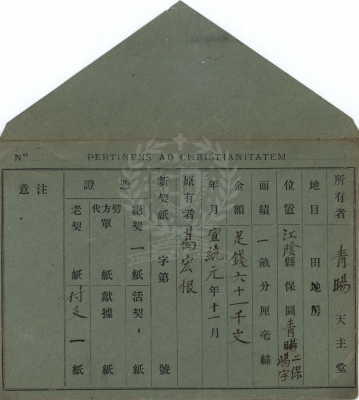 Nº
PERTINENS AD CHRISTIANITATEM
所有者 青暘 天主堂
地目 田地房
位置 江陰縣 保圖 青暘二保 暘字
面積 一畝分厘毫絲
金額 足錢六十一千文
年月 宣統元年十一月
原有者 葛宏根
新契紙 字第 號
憑證 絕契 一紙 活契 紙
代方單 劈 紙 獻據 紙
老契 紙 付文 一紙
注意